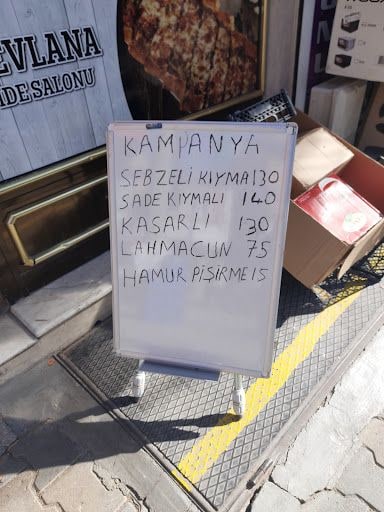 EVLANA
İDE SALONU
KAMPANYA
SEBZELİ KIYMA 130
SADE KIYMALI 140
KAŞARLI 130
LAHMACUN 75
HAMUR PİŞİRME 15